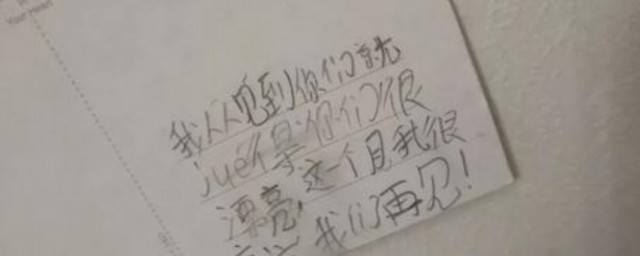 Your Heart
我从见到你们就
jue得你们很
漂亮,这一个月我很
我们再见!